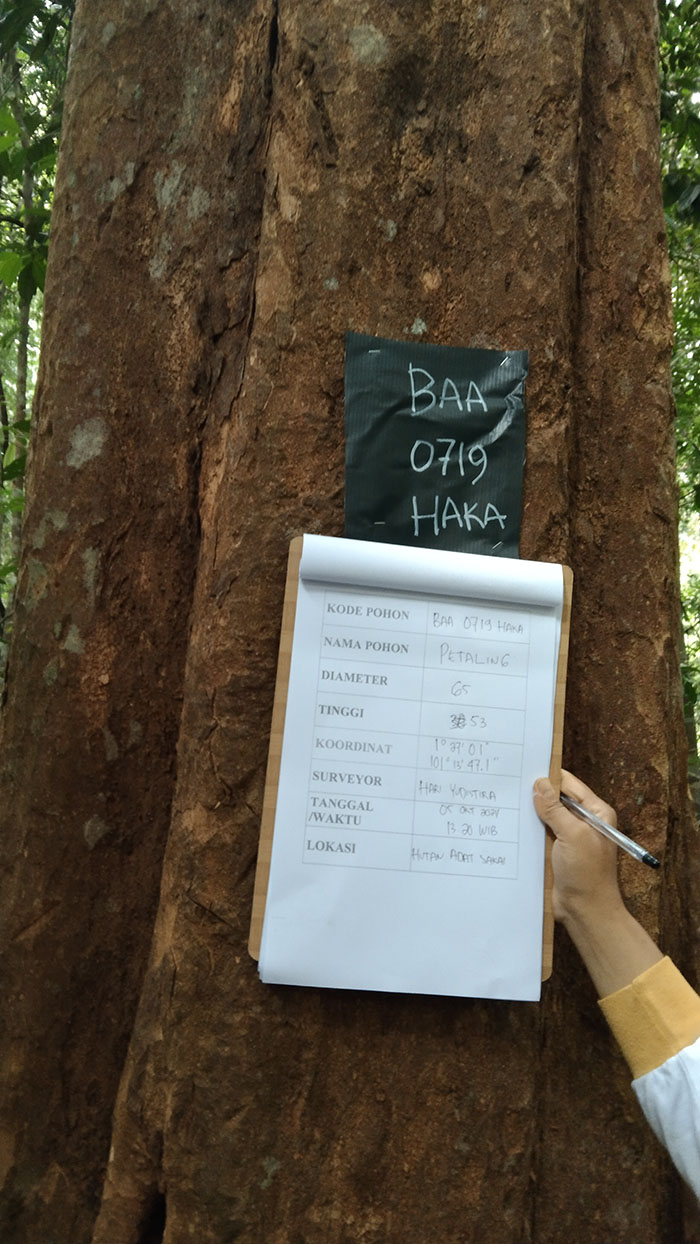 BAA
0719
HAKA
KODE POHON BAA 0719 HAKA
NAMA POHON PETALING
DIAMETER 65
TINGGI 53
KOORDINAT 1° 27' 01"
101° 13' 47.1"
SURVEYOR HARI YUDISTIRA
TANGGAL 05 OKT 2024
/WAKTU 13 20 WIB
LOKASI HUTAN ADAT SAKAI